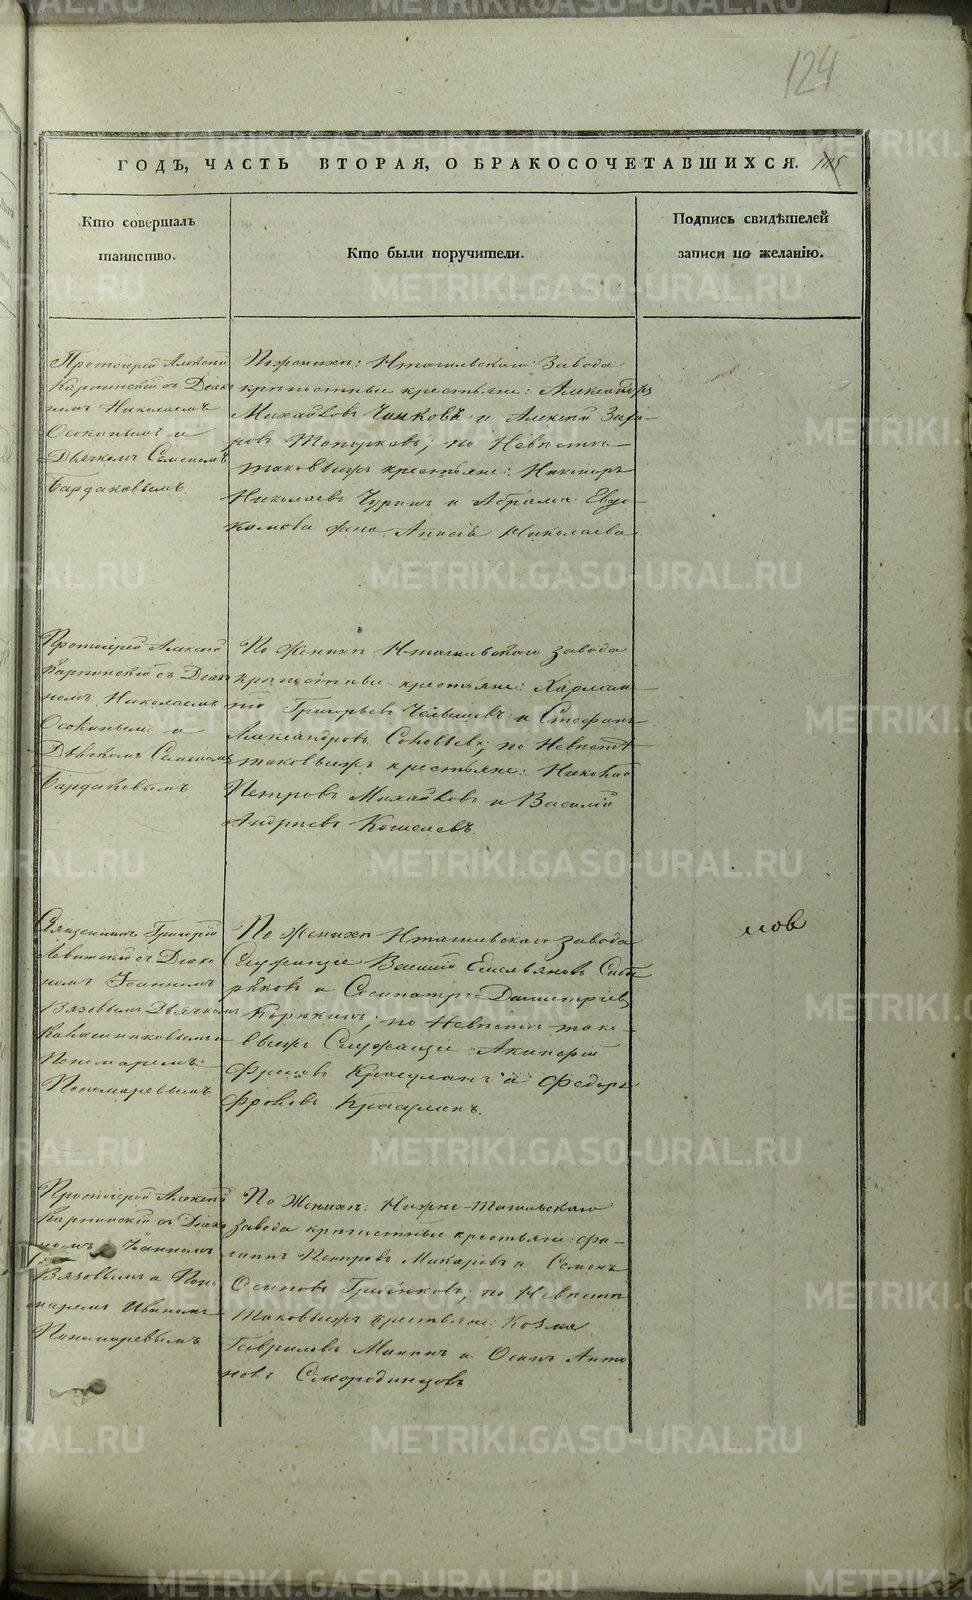 124
ГОДЪ, ЧАСТЬ ВТОРАЯ, О БРАКОСОЧЕТАВШИХСЯ.
Кто совершалъ
таинство.
Кто были поручители.
Подпись свидѣтелей
записи по желанію.
Протоіерей Алексій
Карпинскій съ Діако
номъ Николаемъ
Осокинымъ и
Дьячкомъ Семеномъ
Бардаковымъ
По женихѣ: Нтагильскаго завода
крѣпостные крестьяне: Александръ
Михайловъ и Алексій Заха-
ровъ Топорковъ; по Невѣстѣ
таковыежъ крестьяне: Никаноръ
Николаевъ Чуринъ и Абрама Евдо-
кимова жена Николаева
Протоіерей Алексій
Карпинскій съ Діако
номъ Николаемъ
Осокинымъ и
Дьячкомъ Семеномъ
Бардаковымъ
По Женихѣ Нтагильскаго завода
крѣпостные крестьяне: Харлам-
пій Григорьевъ Челышевъ и Стефанъ
Александровъ Соловьевъ; по Невѣстѣ
таковыежъ крестьяне: Николай
Петровъ Михайловъ и Василій
Андреевъ Кошелевъ.
Священникъ Григорій
Левитскій съ Діако
номъ Іоанномъ
Вязовымъ Дьячкомъ
Калашниковымъ и
Пономаремъ
Пономаревымъ
По Женихѣ Нтагильскаго завода
Служащіе Василій Емельяновъ
и Сосипатръ Димитріевъ
Корюкинъ; по Невѣстѣ тако-
выежъ Служащіе Акинфій
Фроловъ и Федоръ
Фроловъ
мов
Протоіерей Алексій
Карпинскій съ Діако
номъ Іоанномъ
Вязовымъ и Поно
маремъ Иваномъ
Пономаревымъ
По Женихѣ: Нижне-Тагильскаго
завода крѣпостные крестьяне: Фи-
липпъ Петровъ Макаровъ и Семенъ
Осиповъ Гребенковъ; по Невѣстѣ
таковыежъ крестьяне: Козма
Гавриловъ Мининъ и Осипъ Анто
новъ Смородинцовъ
METRIKI.GASO-URAL.RU